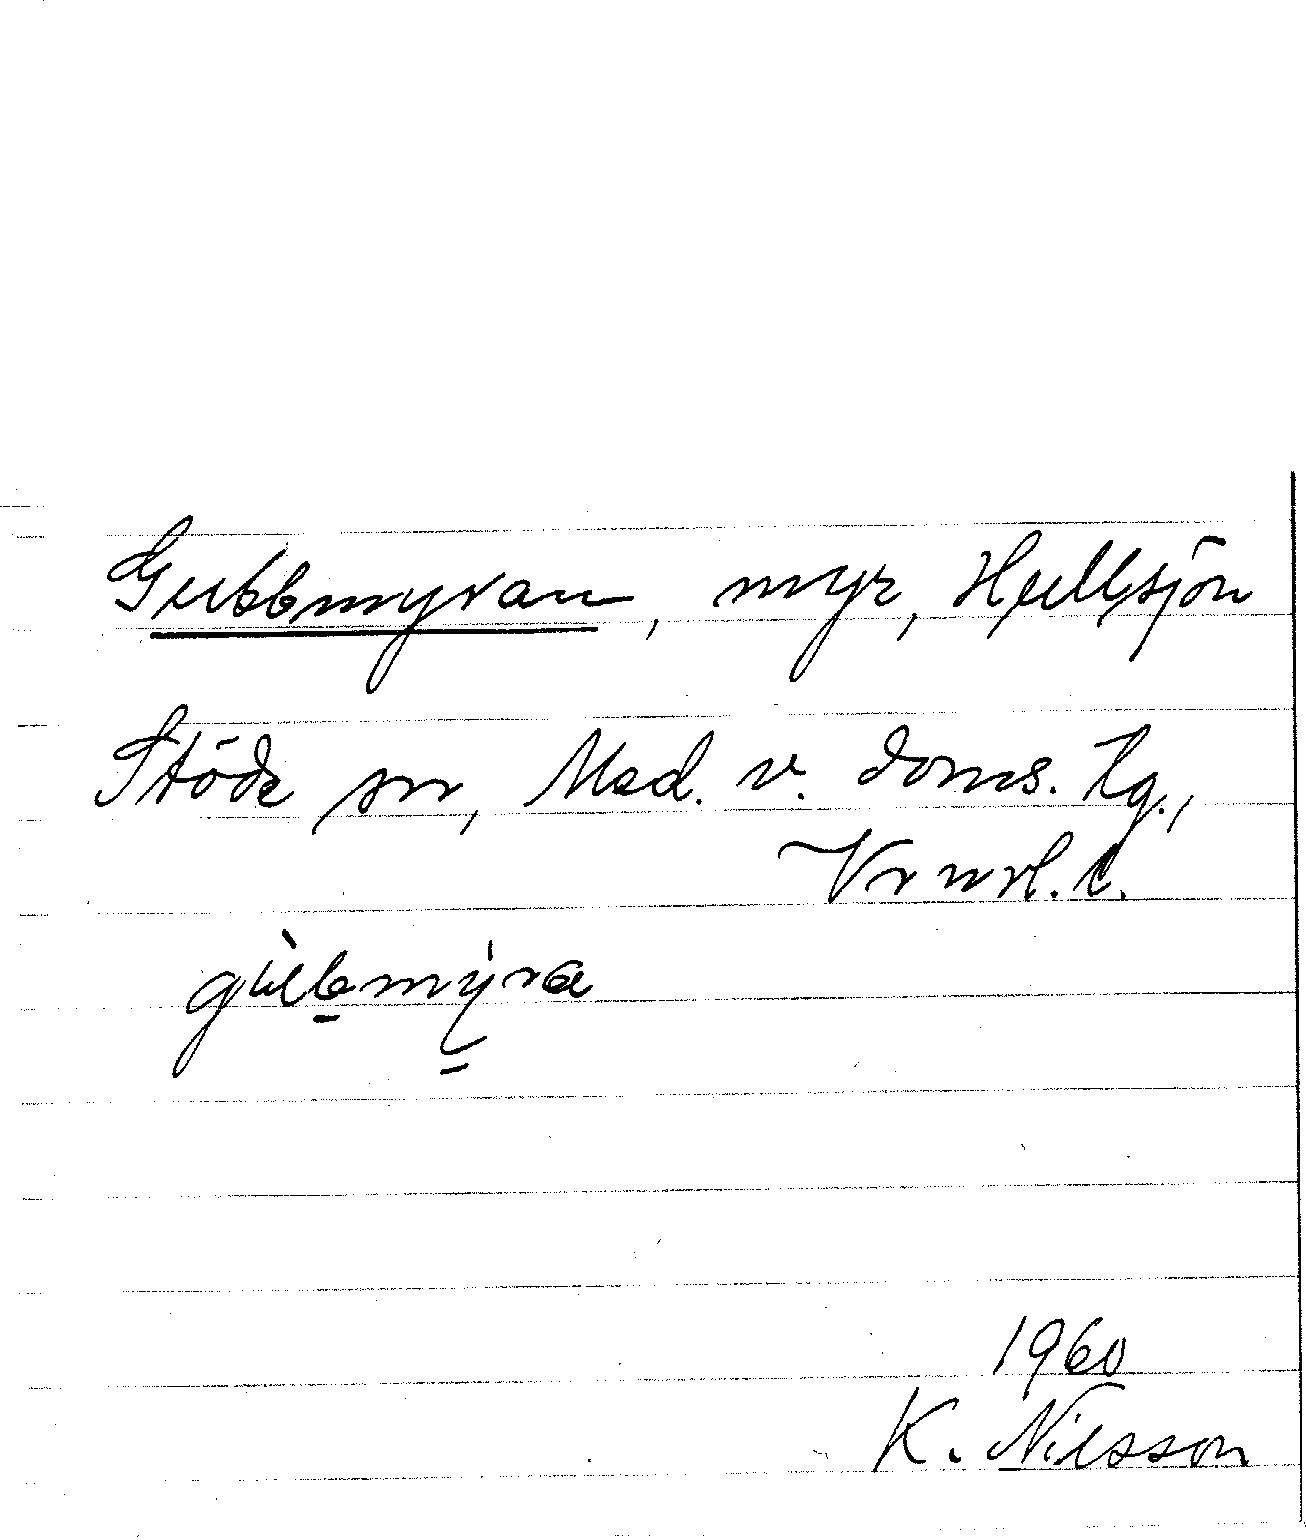 Gubbmyran, myr, Hullsjön
Stöde sn, Med. v. doms. tg.,
Vrnrl. l.
gùbmýra
1960
K. Nilsson